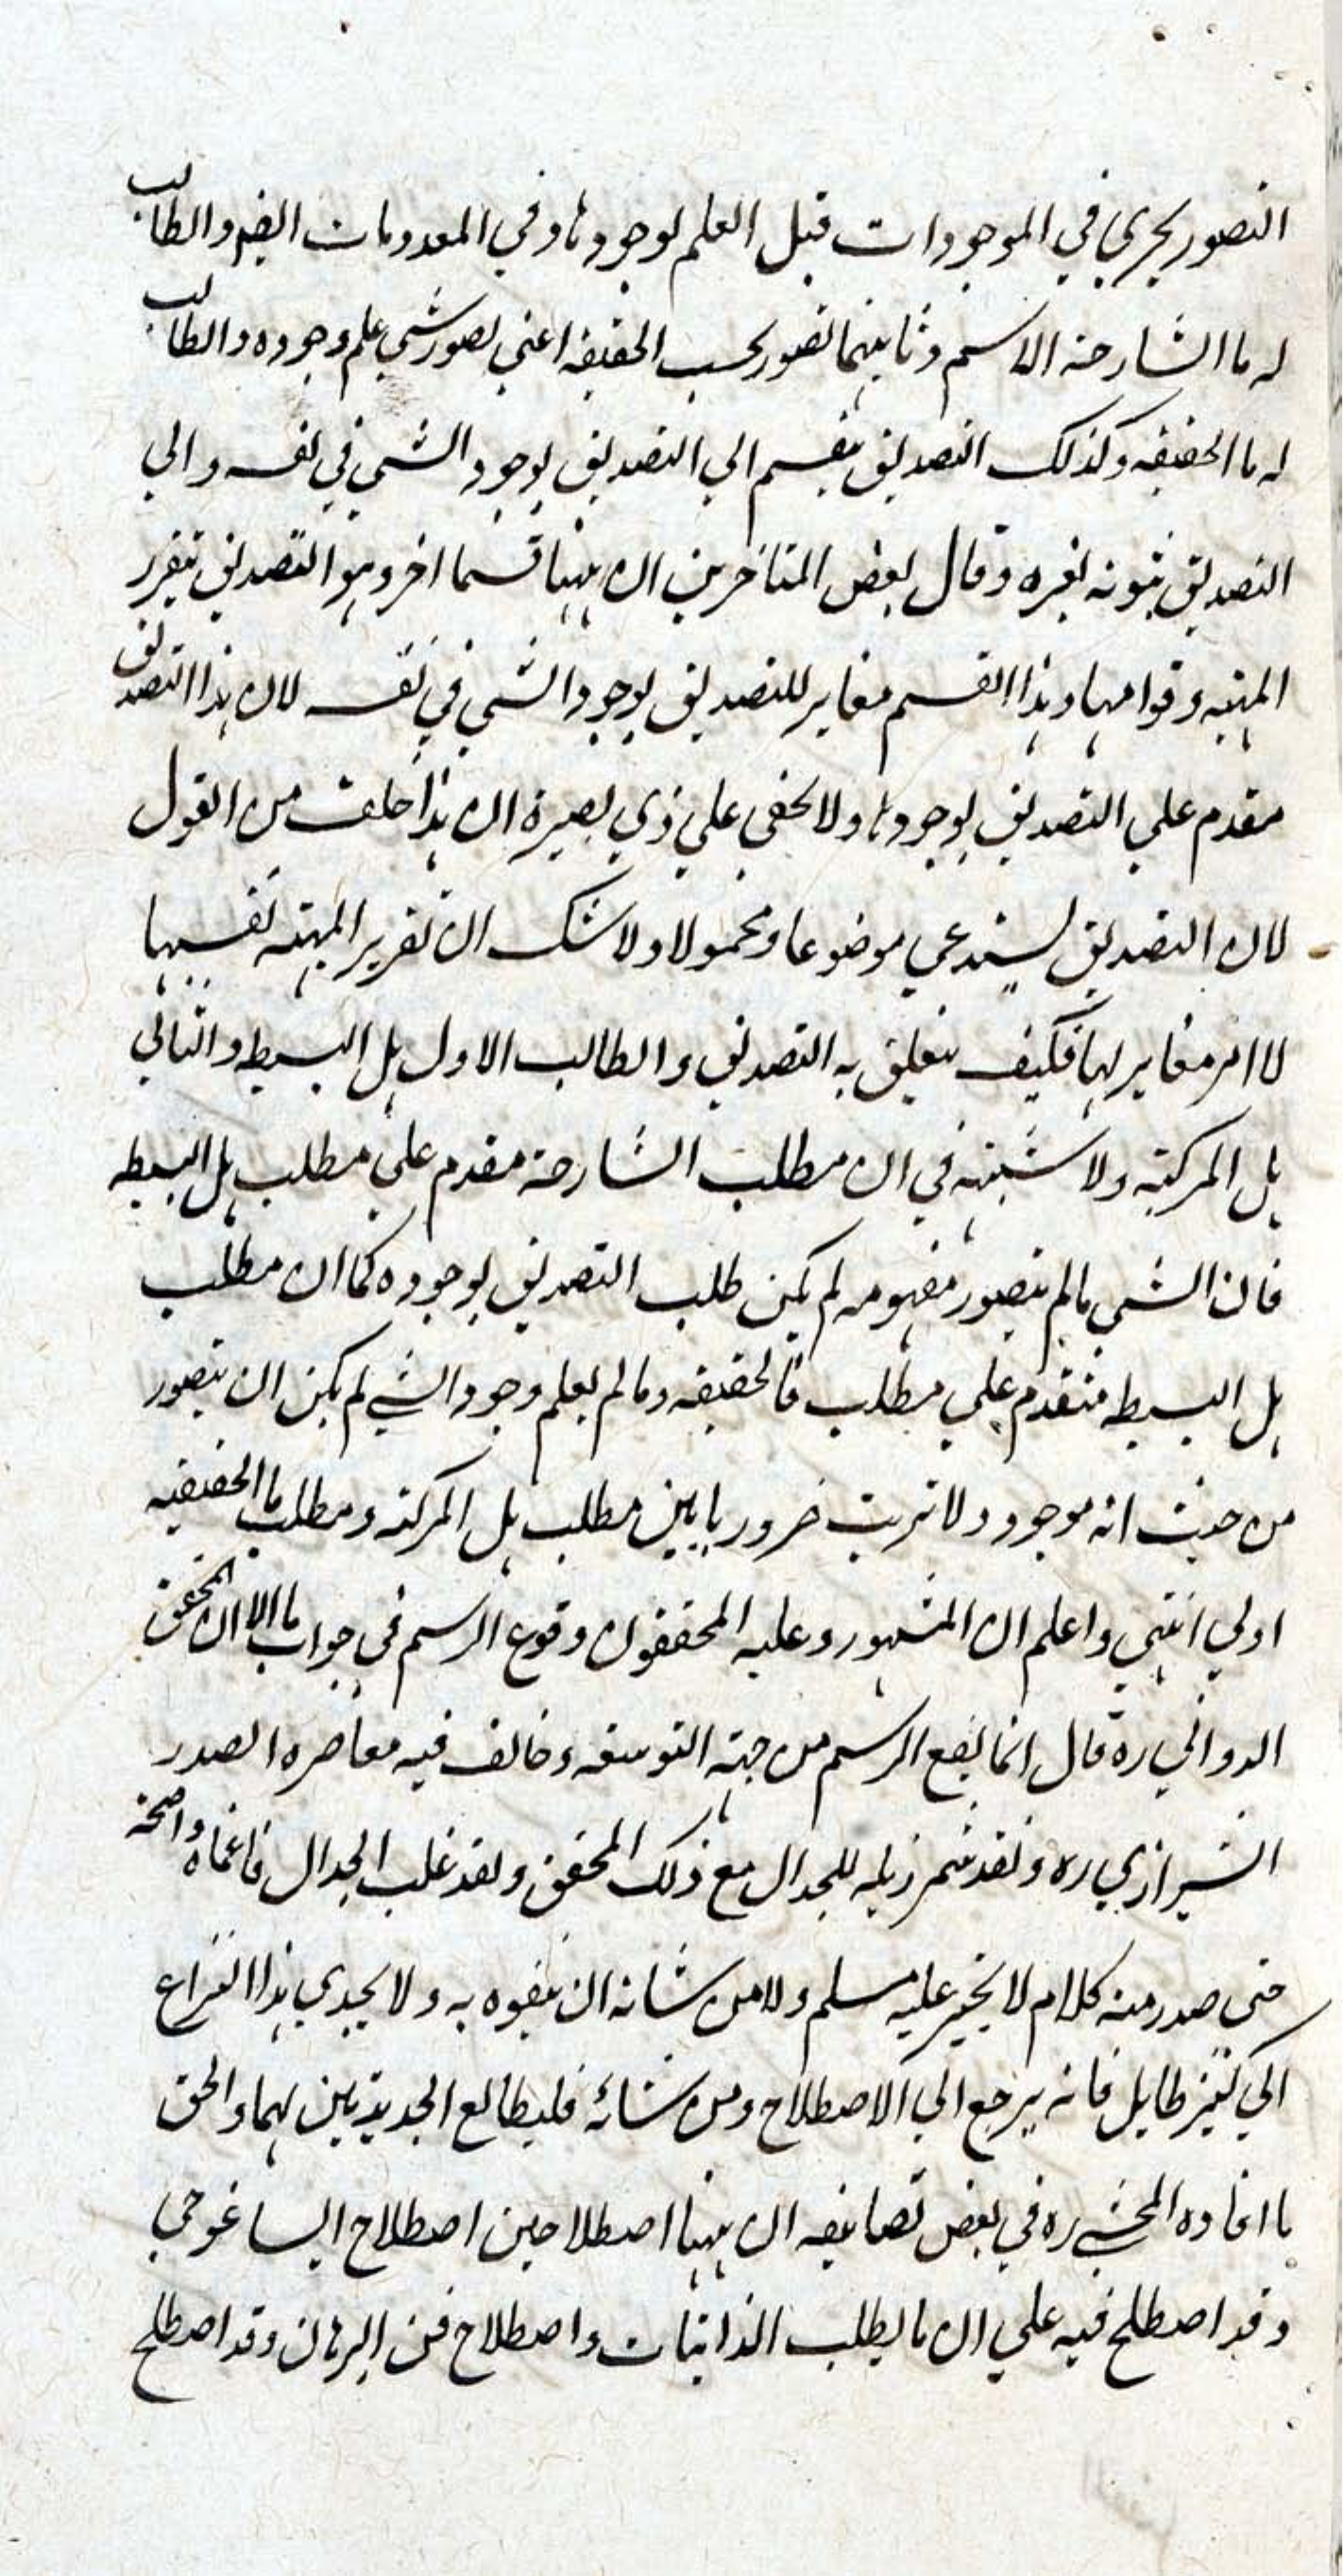 التصور يجري في الموجودات قبل العلم بوجودها وفي المعدومات ايضا والطالب
له ما الشارحة الاسم وثانيهما تصور بحسب الحقيقه اعني تصور شي علم وجوده والطالب
له ما الحقيقه وكذلك التصديق ينقسم الي التصديق بوجود الشي في نفسه والي
التصديق بثبوته لغيره وقال بعض المتاخرين ان ههنا قسما اخر وهو التصديق بتقرر
المهيه وقوامها وهذا القسم مغاير للتصديق بوجود الشي في نفسه لان هذا التصديق
مقدم علي التصديق بوجودها ولا يخفي علي ذي بصيرة ان هذا خلف من القول
لان التصديق يستدعي موضوعا ومحمولا ولا شك ان تقرير المهية نفسها
لا امر مغاير لها فكيف يتعلق به التصديق والطالب الاول هل البسيط والثاني
هل المركبة ولا شبهة في ان مطلب الشارحة مقدم علي مطلب هل البسيطه
فان الشي ما لم يتصور مفهومه لم يكن طلب التصديق بوجوده كما ان مطلب
هل البسيط متقدم علي مطلب ما الحقيقه وما لم يعلم وجود الشي لم يكن ان يتصور
من حيث انه موجود ولا ترتيب ضروريا بين مطلب هل المركبة ومطلب ما الحقيقيه
اولي انتهي واعلم ان المشهور وعليه المحققون وقوع الرسم في جواب ما الا ان المحقق
الدواني ره قال انما يقع الرسم من جهة التوسعه وخالف فيه معاصره الصدر
الشيرازي ره ولقد شمر ذيله للجدال مع ذلك المحقق ولقد غلب الجدال فاعماه واصمه
حتي صدر منه كلام لا يجير عليه مسلم ولا من شانه ان يتفوه به ولا يجدي هذا النزاع
الي كثير طايل فانه يرجع الي الاصطلاح ومن شائه فليطالع الجديدتين لهما والحق
ما افاده المحشي ره في بعض تصانيفه ان ههنا اصطلاحين اصطلاح ايساغوجي
وقد اصطلح فيه علي ان ما يطلب الذاتيات واصطلاح فن البرهان وقد اصطلح